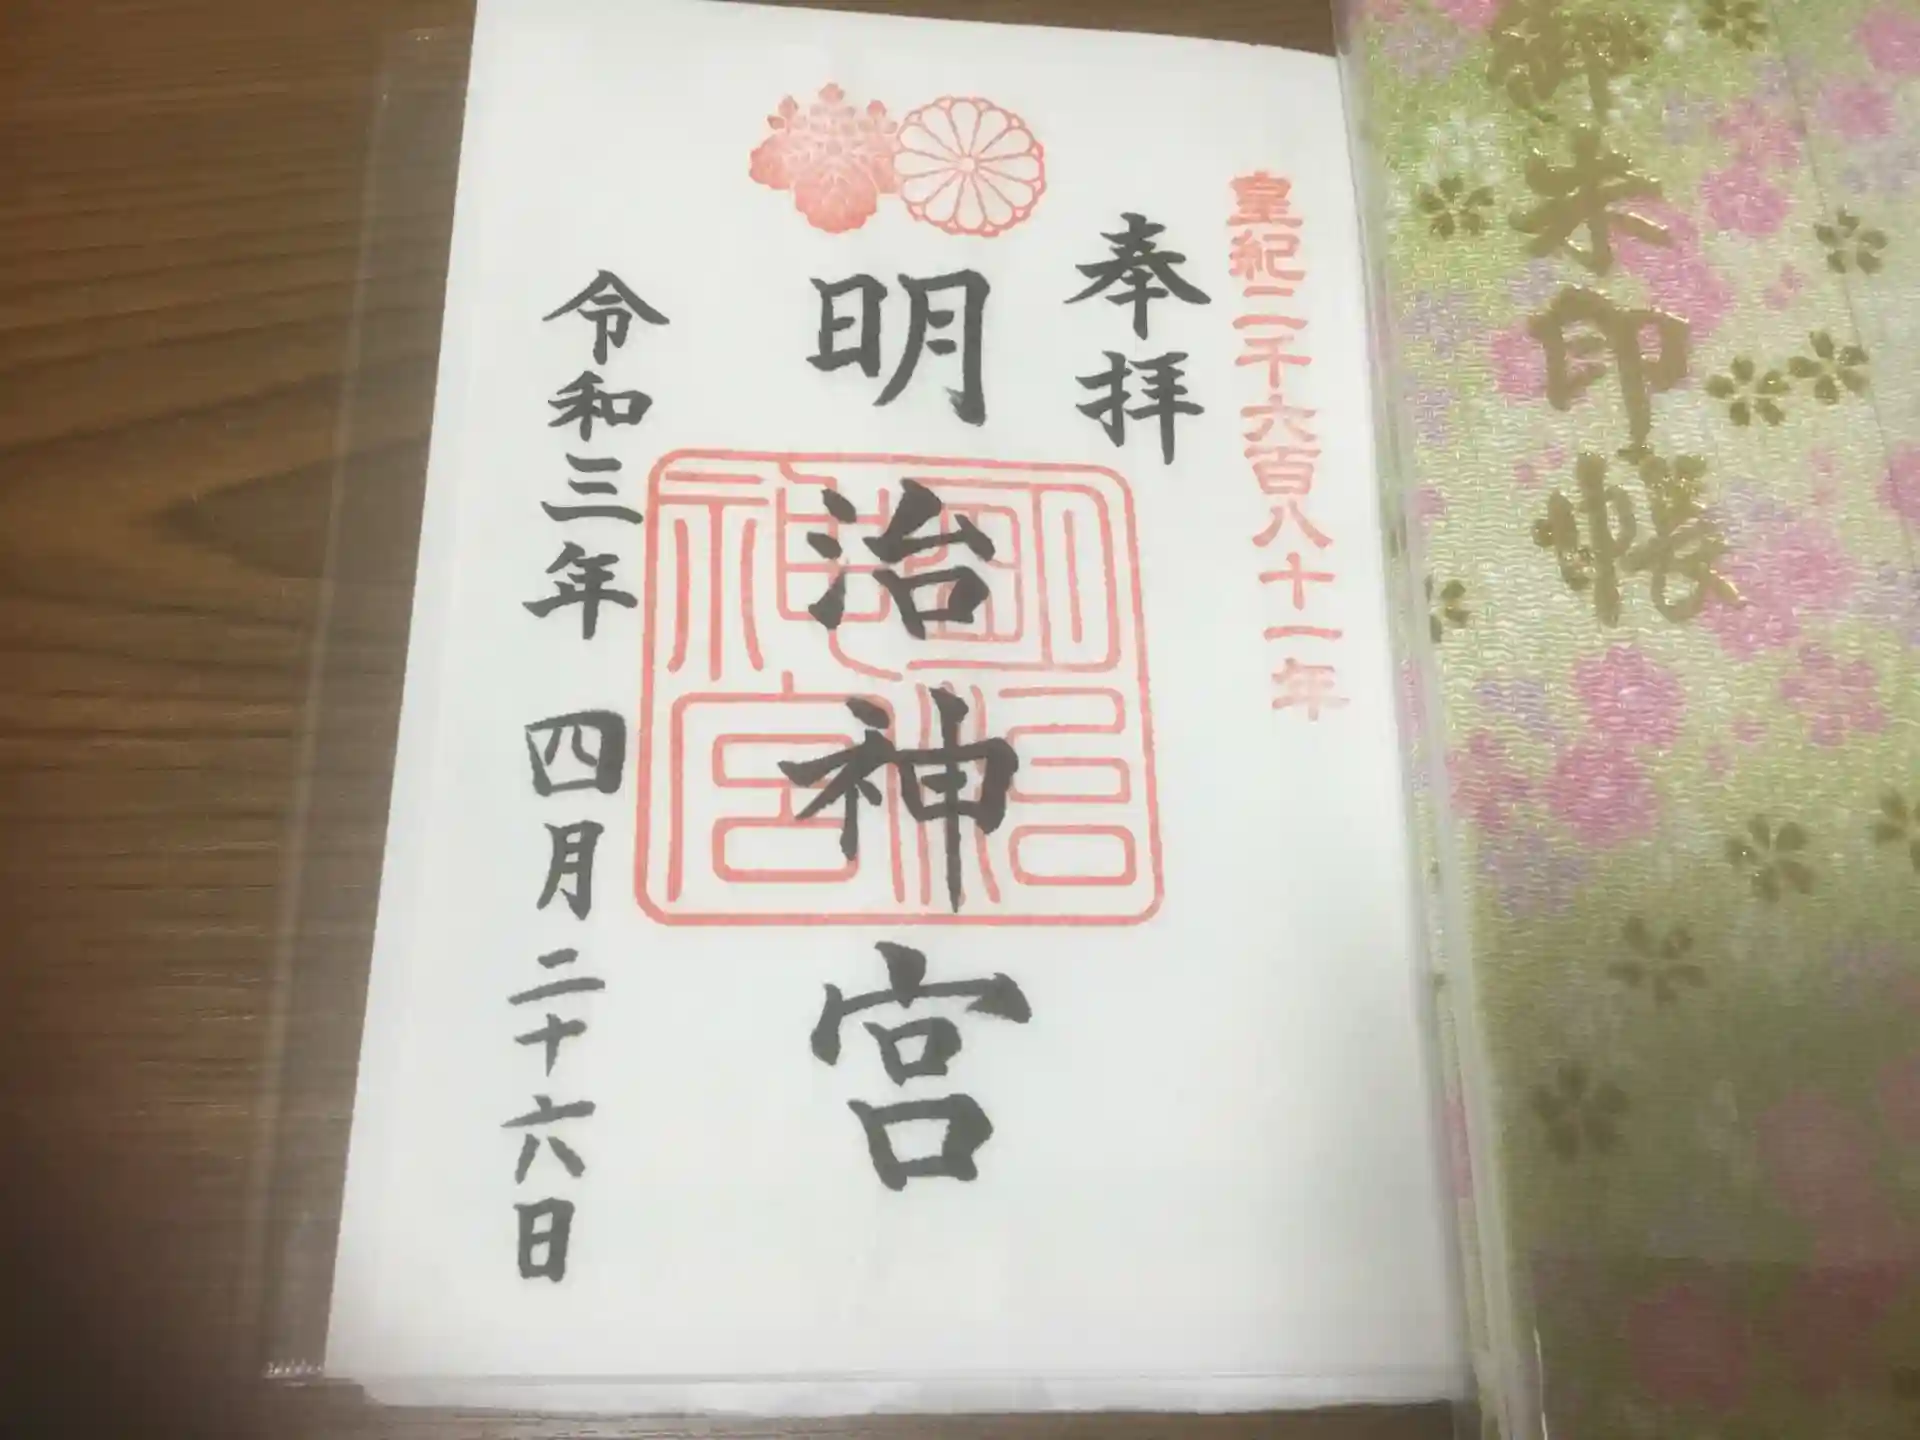 御朱印帳
皇紀二千六百八十一年
奉拝
明治神宮
明治神宮
令和三年 四月 二十六日